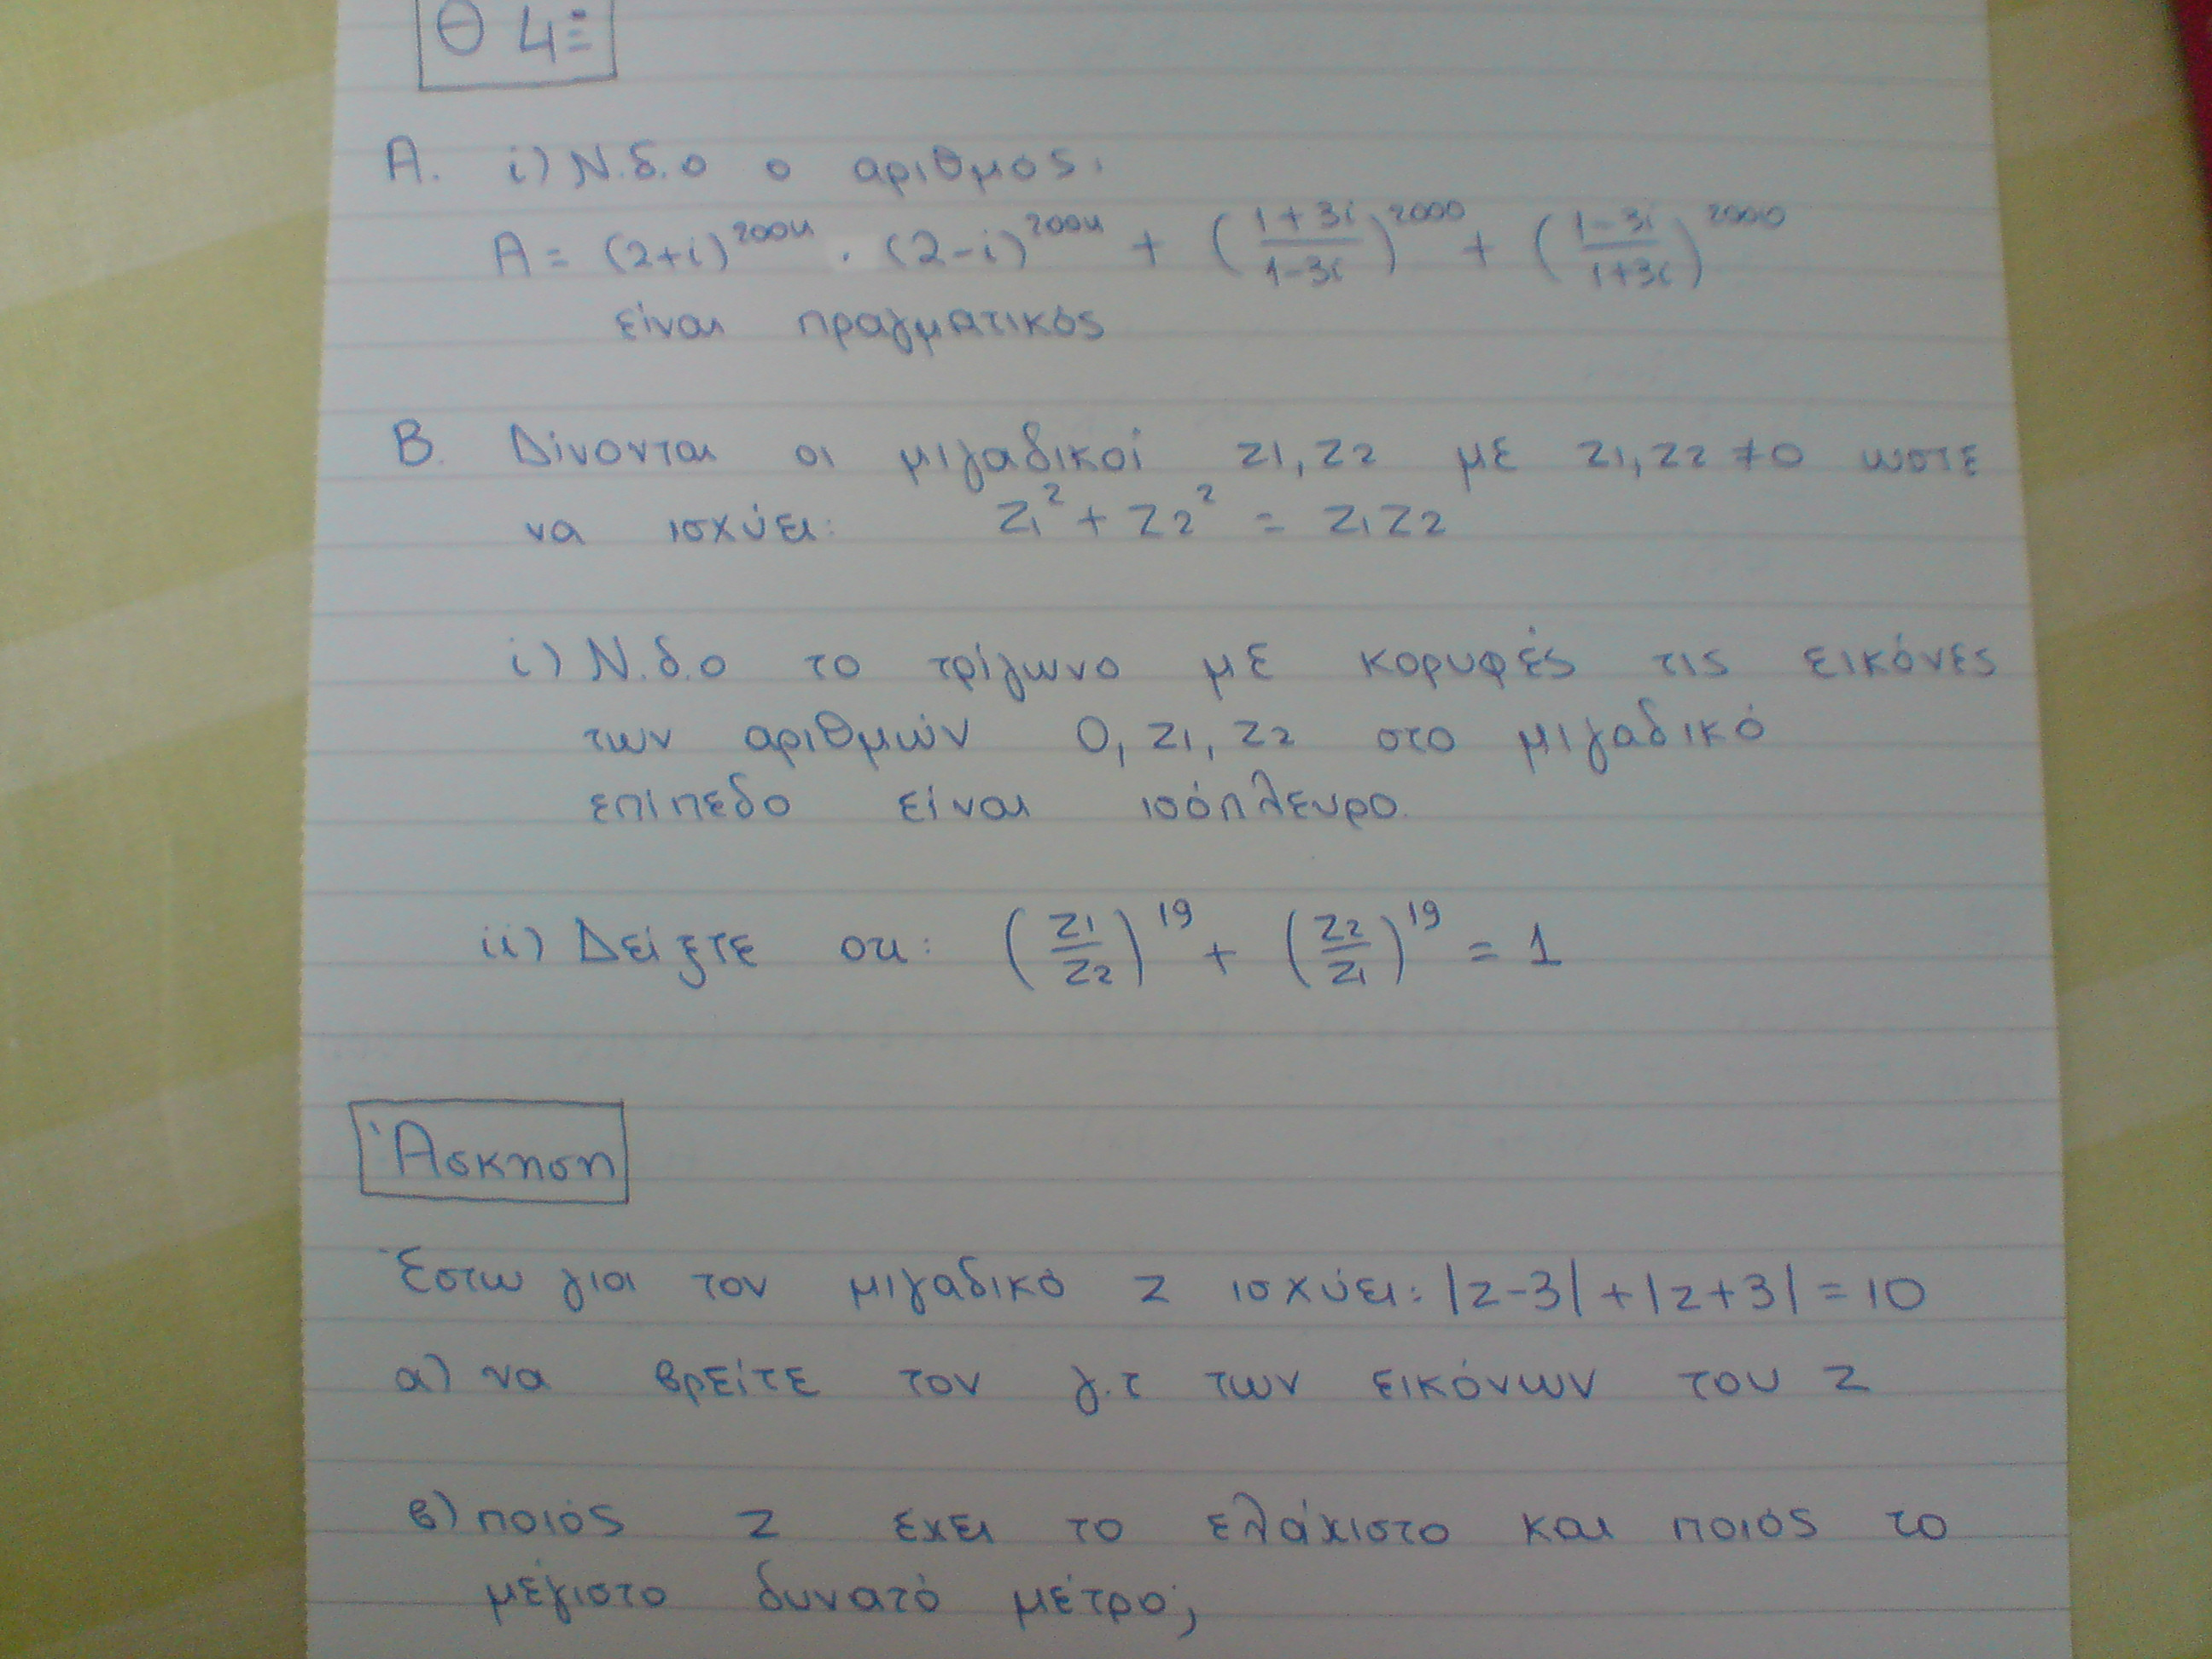 Θ 4Ξ
Α. i) Ν.δ.ο ο αριθμός:
Α = (2+i)^2004 . (2-i)^2004 + ((1+3i)/(1-3i))^2000 + ((1-3i)/(1+3i))^2000
είναι πραγματικός
Β. Δίνονται οι μιγαδικοί z1, z2 με z1, z2 ≠0 ωστε
να ισχύει: z1^2 + z2^2 = z1z2
i) Ν.δ.ο το τρίγωνο με κορυφές τις εικόνες
των αριθμών 0, z1, z2 στο μιγαδικό
επίπεδο είναι ισόπλευρο.
ii) Δείξτε οτι: (z1/z2)^19 + (z2/z1)^19 = 1
Άσκηση
Έστω για τον μιγαδικό z ισχύει: |z-3|+|z+3|=10
α) να βρείτε τον γ.τ των εικόνων του z
β) ποιός z έχει το ελάχιστο και ποιός το
μέγιστο δυνατό μέτρο;